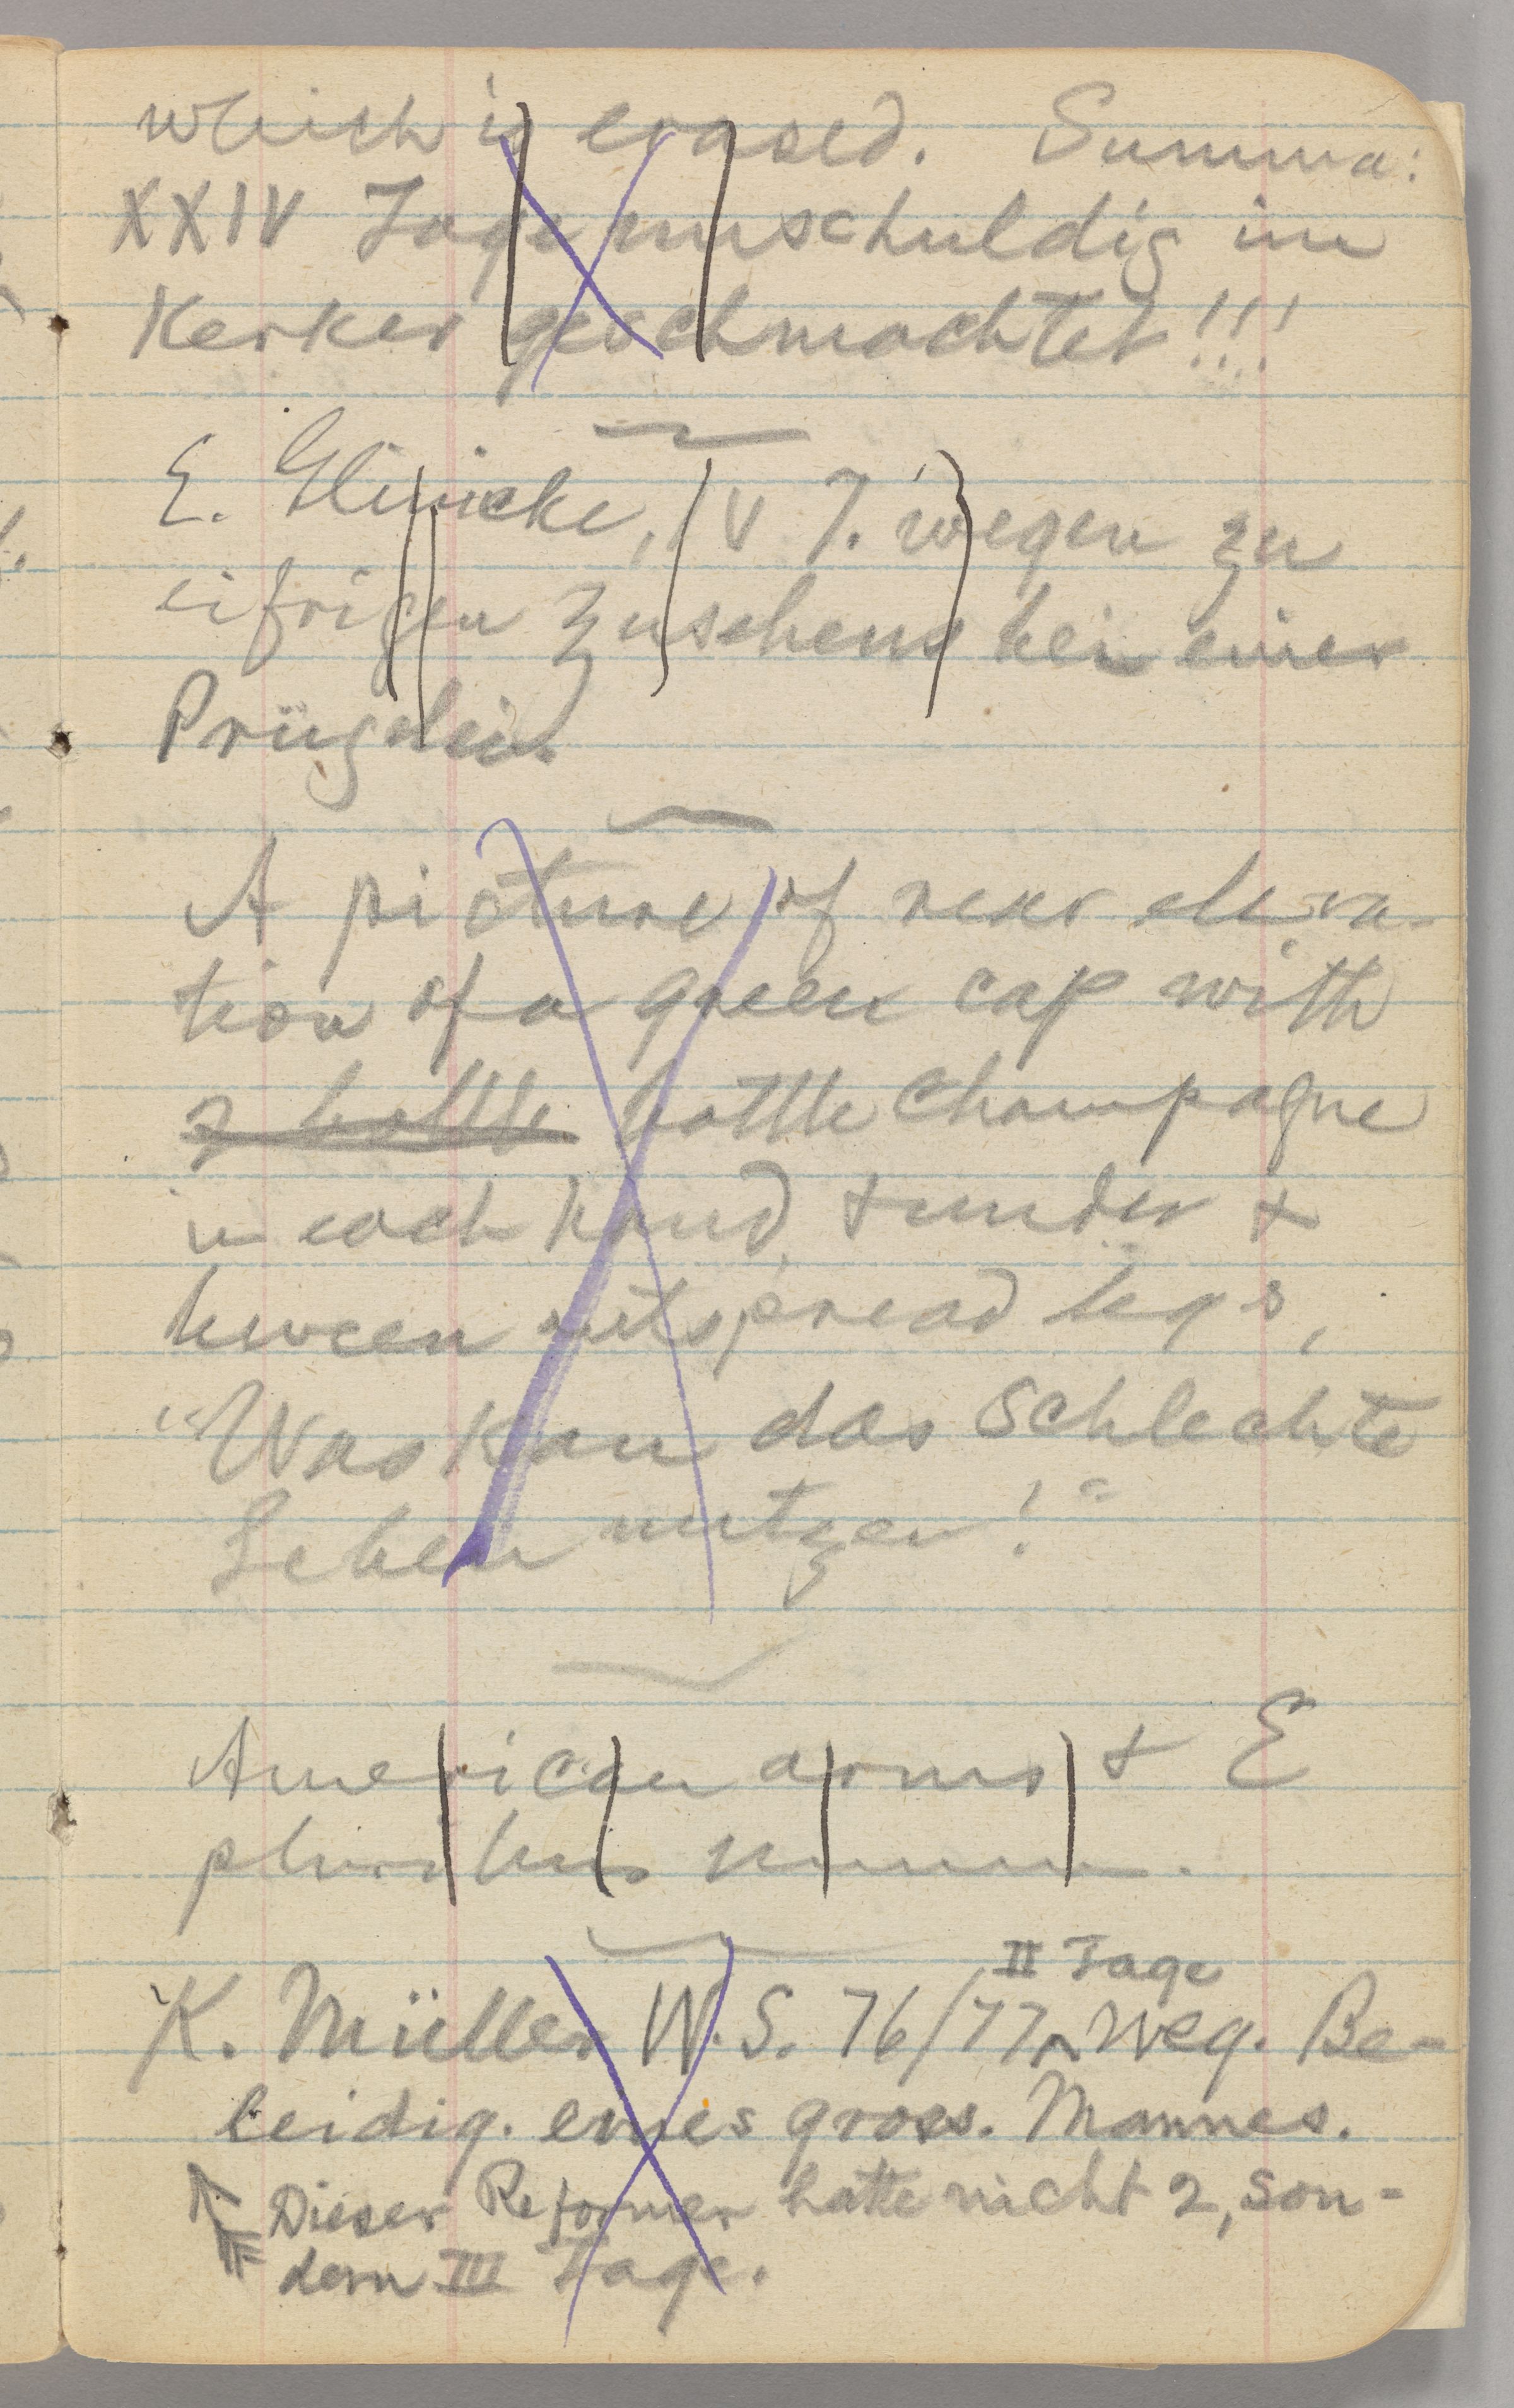 which is erased. Summa:
XXIV Tage unschuldig im
Kerker geschmachtet!!!
E. Glinicke, IV T. wegen zu
eifrigen Zusehens bei einer
Prügelei.
A picture of rear eleva-
tion of a green cap with
2 bottle bottle champagne
in each hand & under &
tween outspread legs,
"Was kan das Schlechte
Leben nutzen!"
American arms & E
pluribus unum.
II Tage
K. Müller W. S. 76/77 weg. Be-
leidig. eines gross. Mannes.
Dieser Reformer hatte nicht 2, son-
dern III Tage.